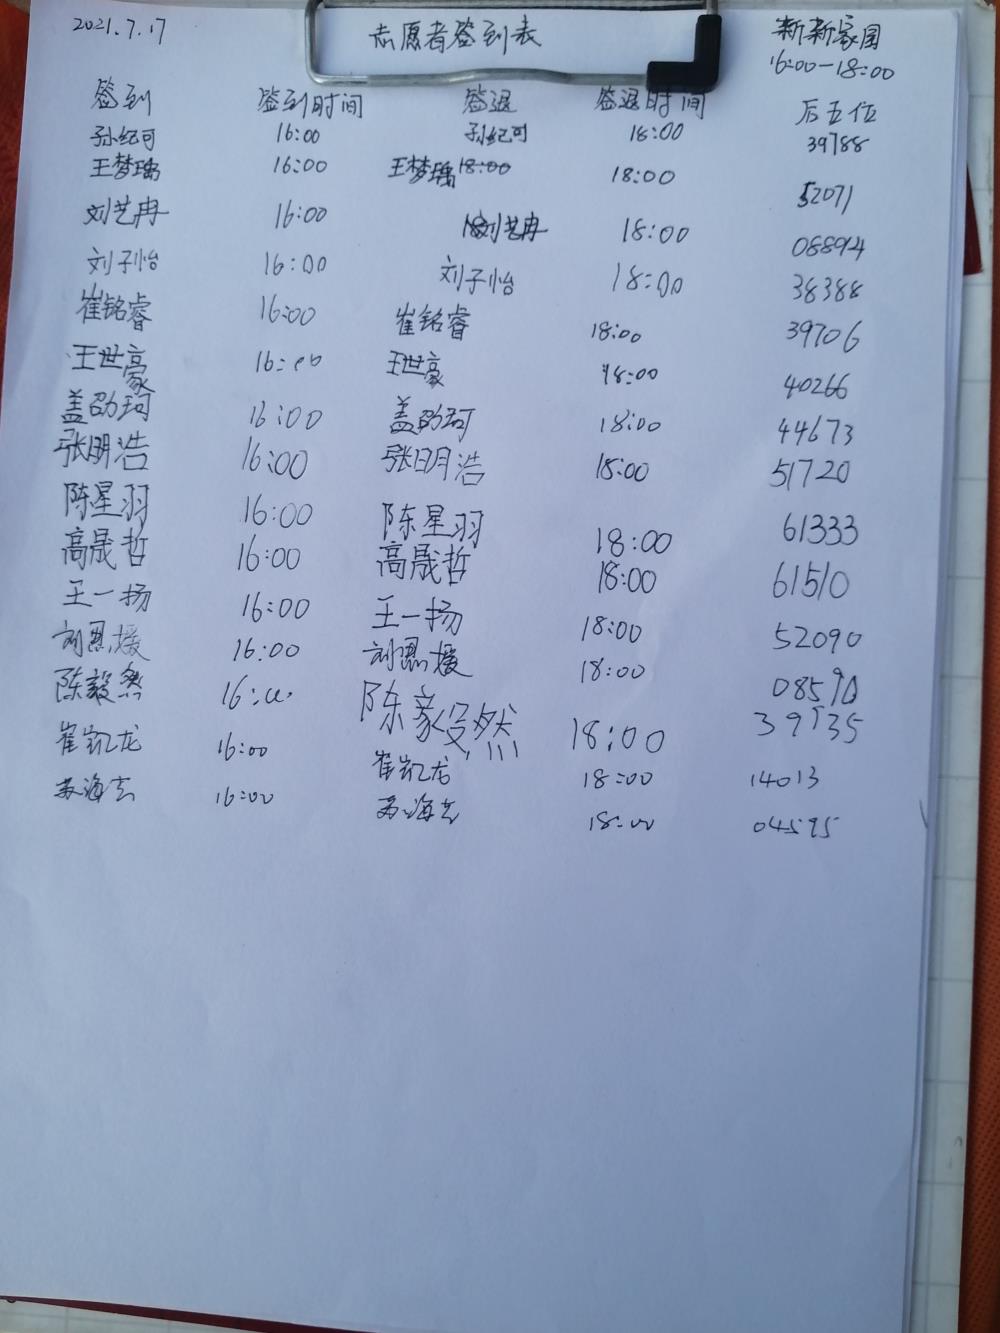 2021.7.17 志愿者签到表 新新家园
16:00-18:00
签到 签到时间 签退 签退时间 后五位
孙纪可 16:00 孙纪可 18:00 39788
王梦瑀 16:00 王梦瑀 18:00 18:00 52071
刘艺冉 16:00 刘艺冉 18:00 08894
刘子怡 16:00 刘子怡 18:00 38388
崔铭睿 16:00 崔铭睿 18:00 39706
王世豪 16:00 王世豪 18:00 40266
盖劭珂 16:00 盖劭珂 18:00 44673
张明浩 16:00 张明浩 18:00 51720
陈星羽 16:00 陈星羽 18:00 61333
高晟哲 16:00 高晟哲 18:00 61510
王一扬 16:00 王一扬 18:00 52090
刘恩媛 16:00 刘恩媛 18:00 08590
陈毅然 16:00 陈毅然 18:00 39135
崔凯龙 16:00 崔凯龙 18:00 14013
苏海 16:00 苏海 18:00 04595